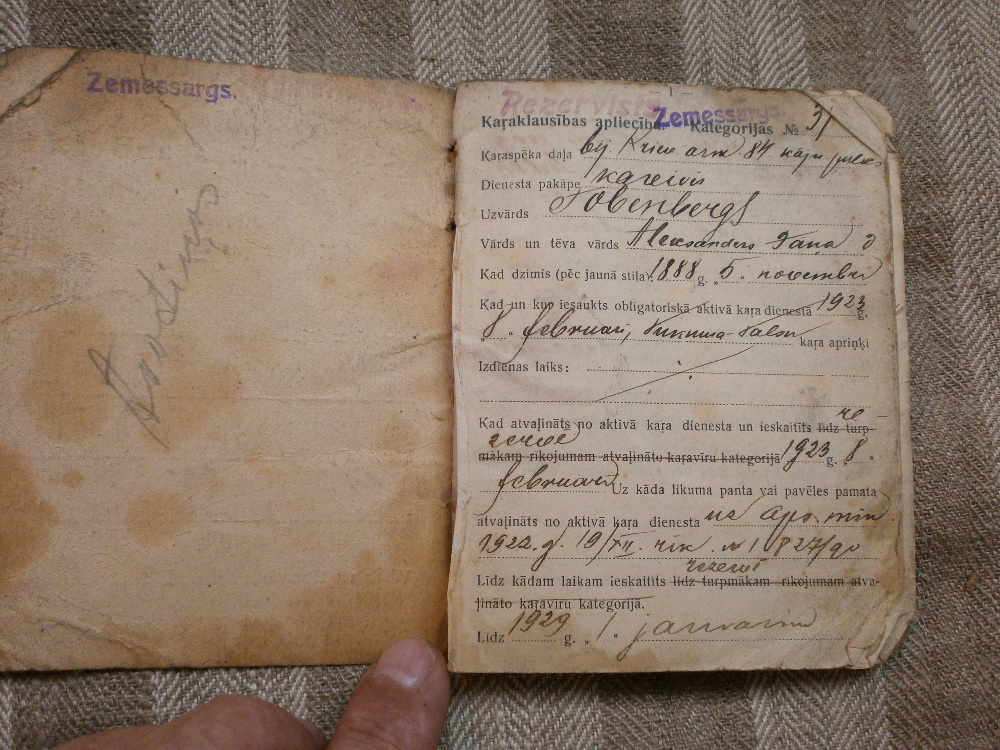 Zemessargs.
— 1 —
Rezervists
Zemessargs.
Kaŗaklausības apliecība. Kategorijas №
Kaŗaspēka daļa bij. Kriev. arm. 84 kāju pulk.
Dienesta pakāpe kareivis
Uzvārds Tobenbergs
Vārds un tēva vārds Aleksanders Jaņa d
Kad dzimis (pēc jaunā stila): 1888 g. „ 5. novembrī
Kad un kur iesaukts obligatoriskā aktīvā kaŗa dienestā 1923 g.
„ 8. februarī, Tukuma-Talsu kaŗa apriņķī
Izdienas laiks:
re
Kad atvaļināts no aktīvā kaŗa dienesta un ieskaitīts līdz turp-
zervē
mākam rīkojumam atvaļināto kaŗavīru kategorijā 1923 g. „ 8.
februarī Uz kāda likuma panta vai pavēles pamata
atvaļināts no aktīvā kaŗa dienesta uz Aps. min
1922. g. 19/XII. rīk. № 1827/90
rezervē
Līdz kādam laikam ieskaitīts līdz turpmākam rīkojumam atva-
ļināto kaŗavīru kategorijā.
Līdz 1929 g. „ 1. janvarim